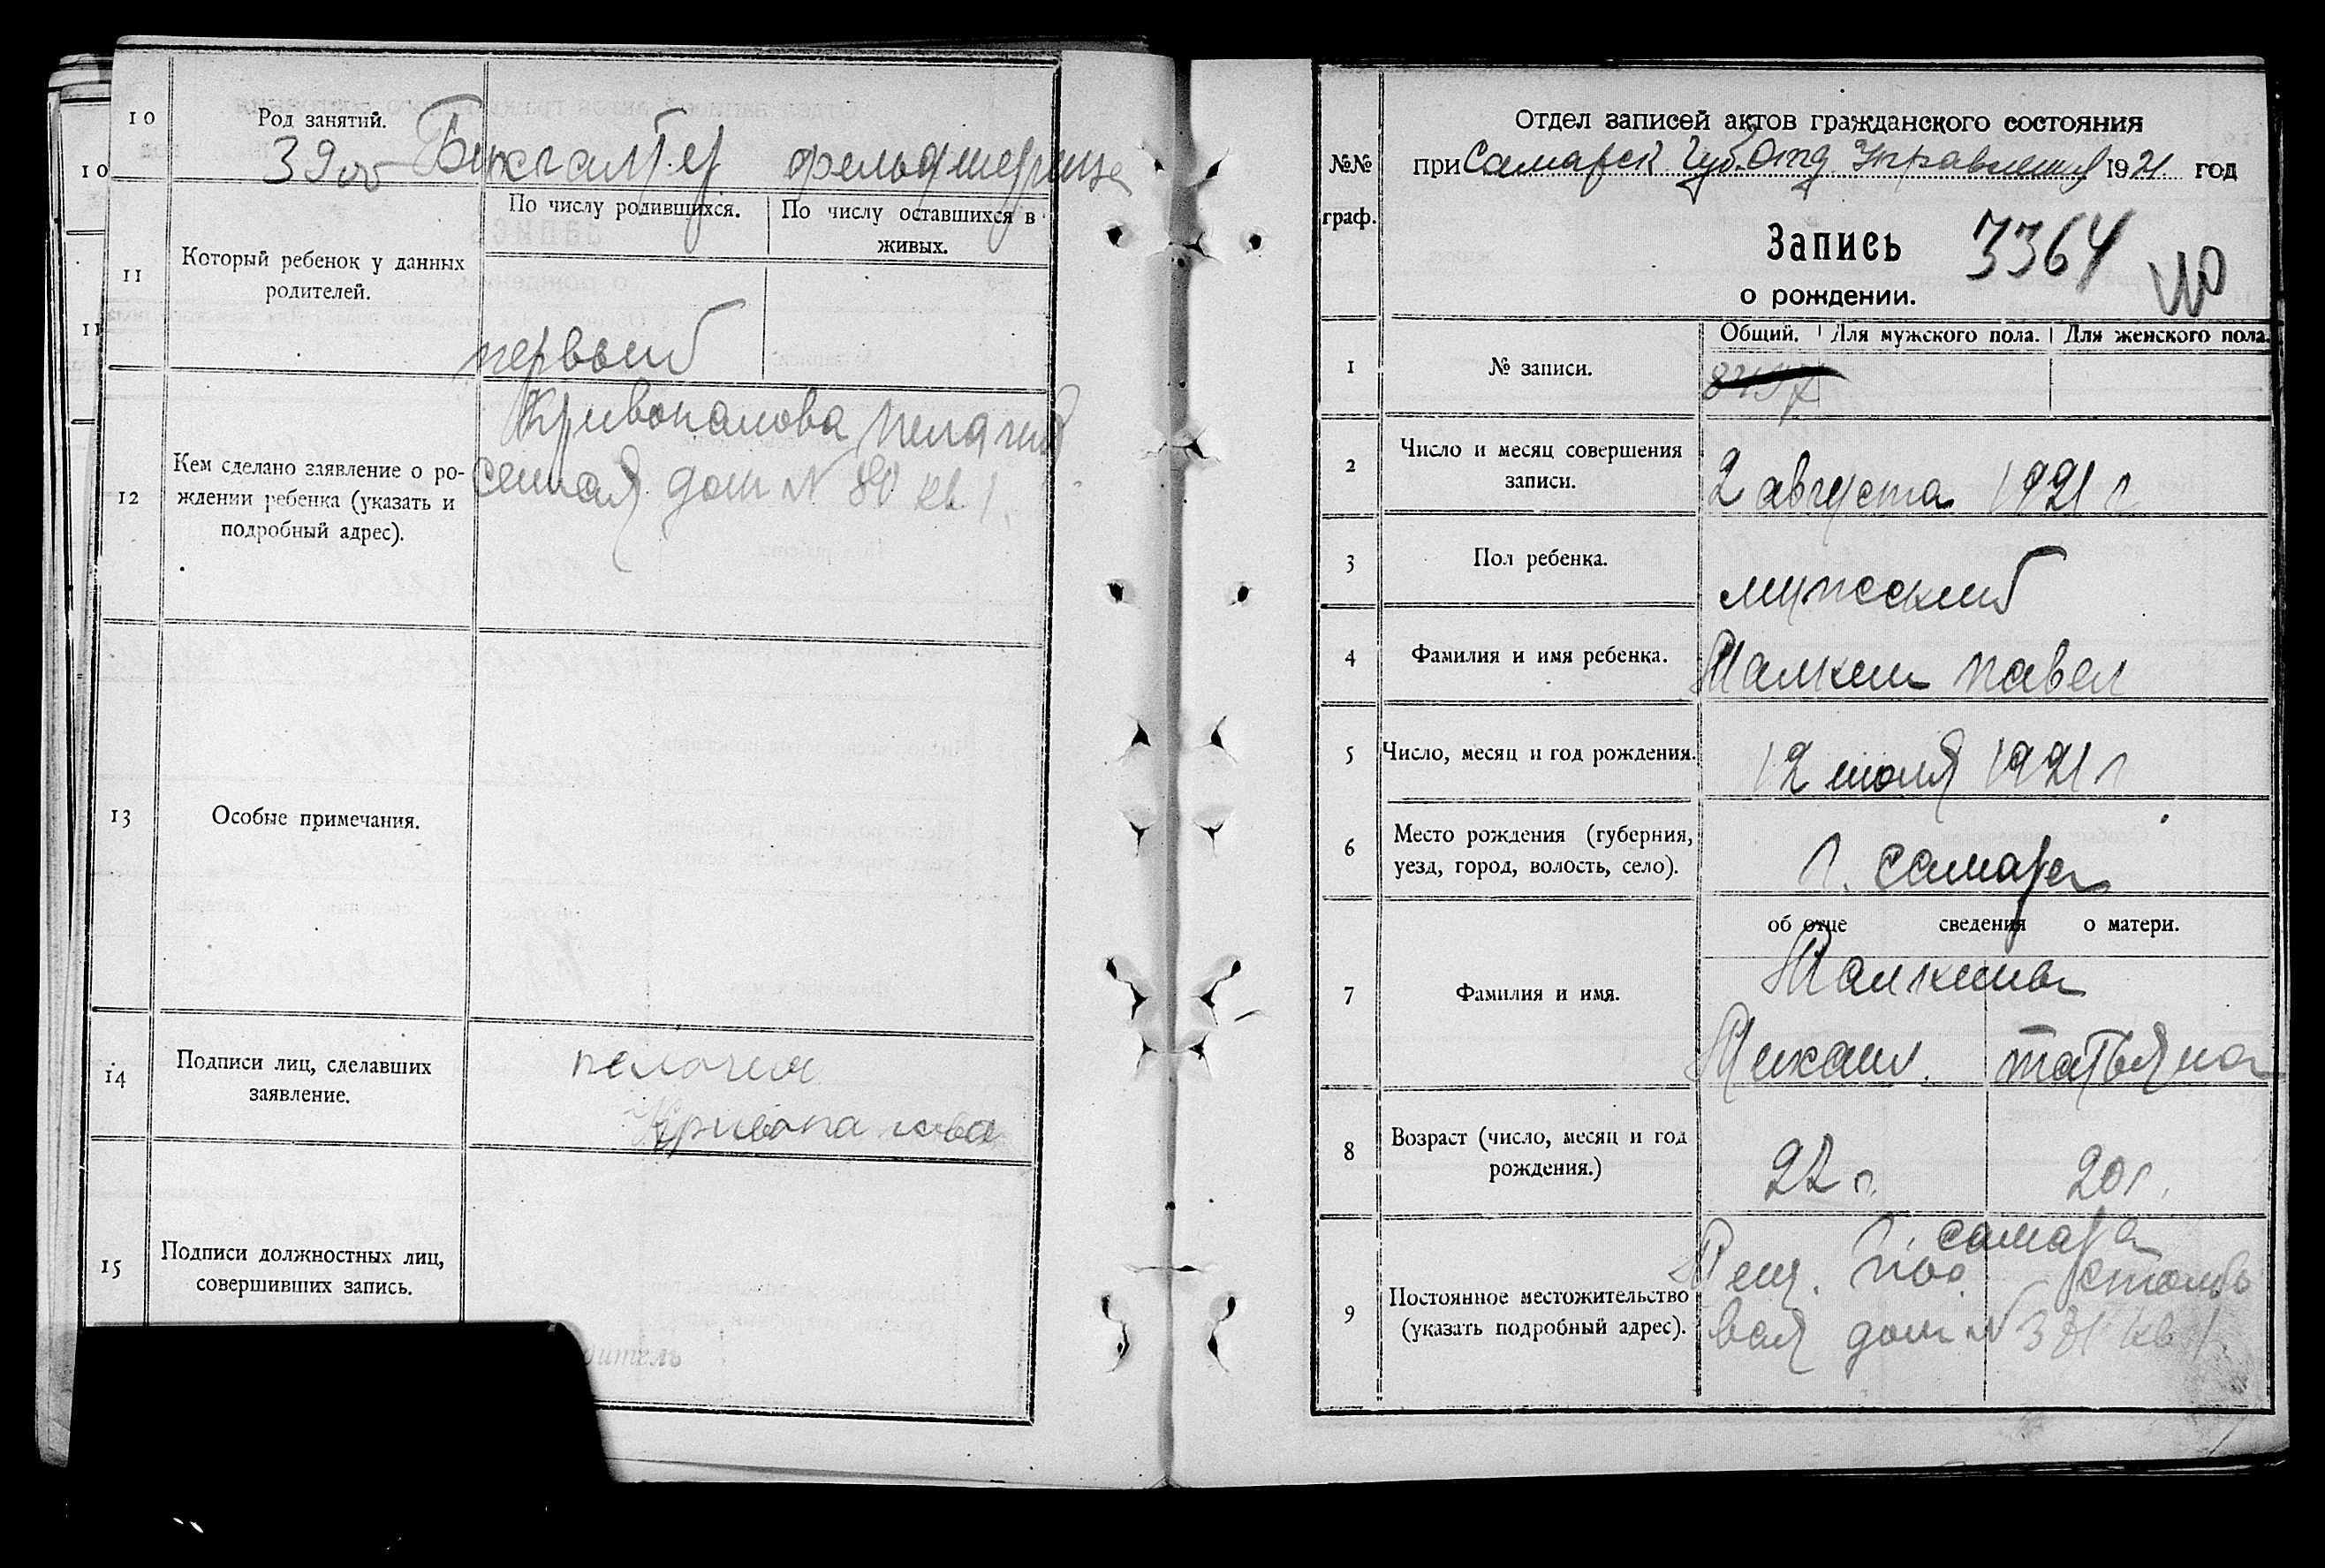 10
Род занятий.
3900 Бухгалтер фельдшерица
10
11
Который ребенок у данных
родителей.
По числу родившихся.
По числу оставшихся в
живых.
первый
11
12
Кем сделано заявление о ро-
ждении ребенка (указать и
подробный адрес).
Кривопалова
дом N 80 кв 1.
13
Особые примечания.
14
Подписи лиц, сделавших
заявление.
15
Подписи должностных лиц,
совершивших запись.
дитель
№№
граф.
Отдел записей актов гражданского состояния
при Самарск Губ.Отд Управления 1921 год
Запись 3364
о рождении.
1
№ записи.
Общий. Для мужского пола. Для женского пола.
2
Число и месяц совершения
записи.
2 августа 1921 г
3
Пол ребенка.
мужской
4
Фамилия и имя ребенка.
павел
5
Число, месяц и год рождения.
12 июля 1921 г
6
Место рождения (губерния,
уезд, город, волость, село).
г. самара
об отце сведения о матери.
7
Фамилия и имя.
Михаил. татьяна
8
Возраст (число, месяц и год
рождения.)
22 г. 20 г.
9
Постоянное местожительство
(указать подробный адрес).
самара
дом N